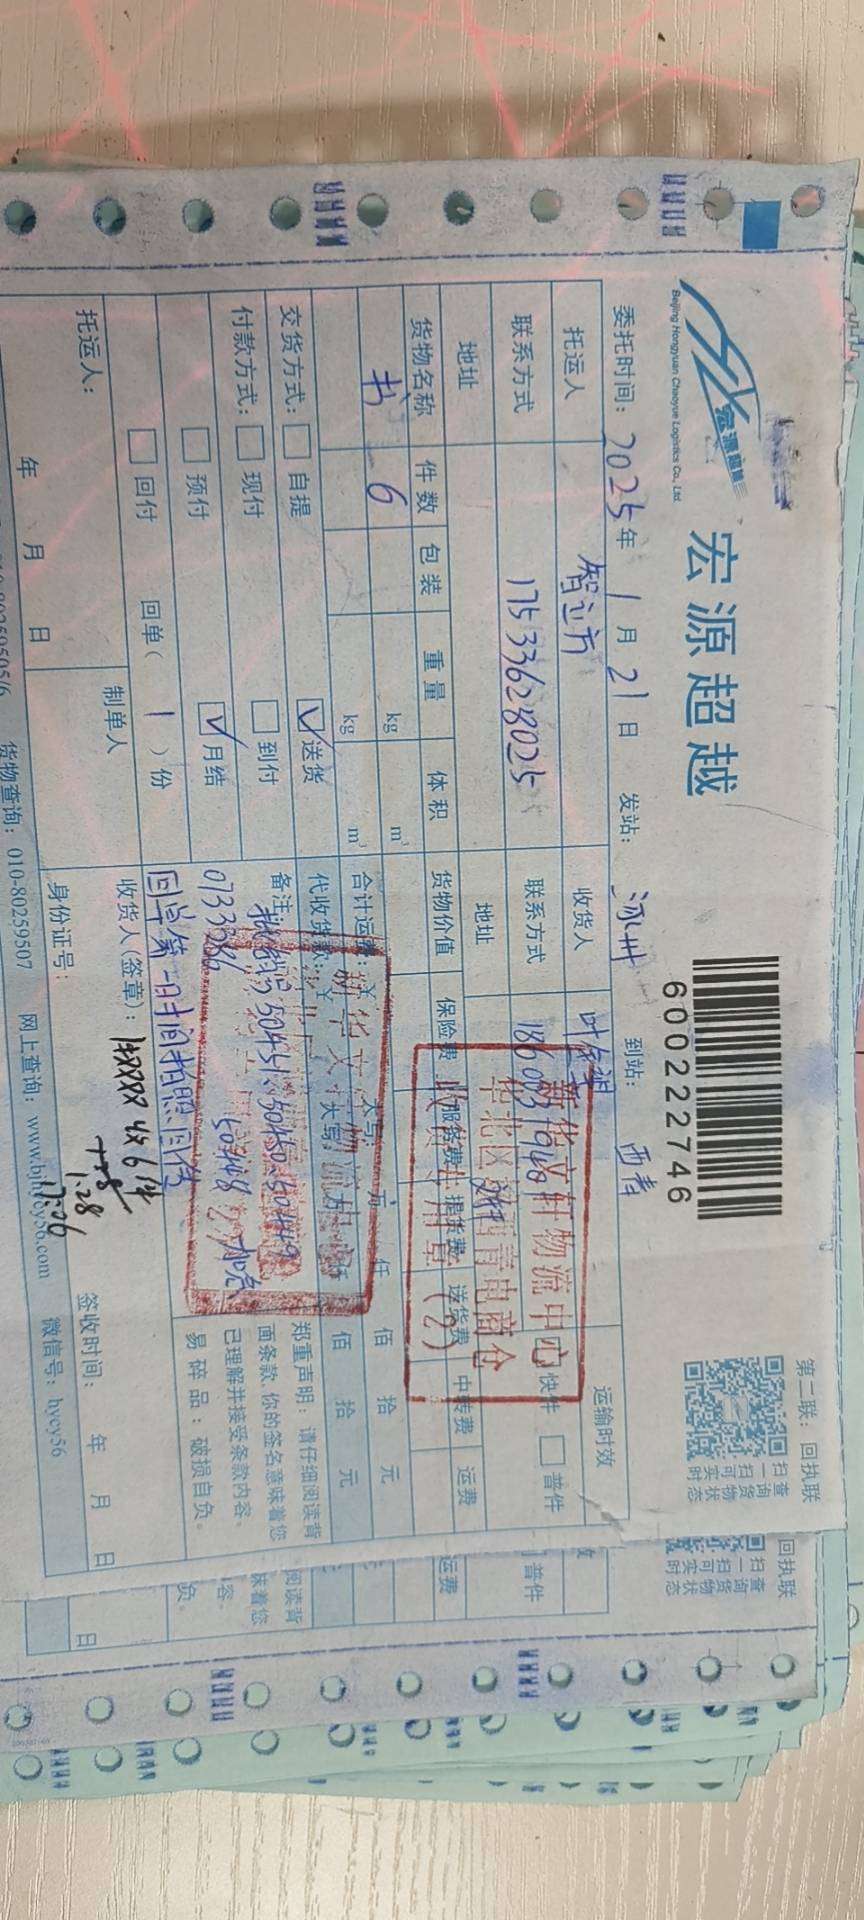 第二联：回执联
宏源超越
宏源超越
Beijing Hongyuan Chaoyue Logistics Co., Ltd.
600222746
扫一扫
查询货物
可实时状态
委托时间：2025年1月21日 发站：涿州 到站：西青
托运人 收货人 运输时效
联系方式 17533628025 联系方式 快件 普件
地址 地址
新华文轩物流中心
华北区西青电商仓
收货专用章（2）
货物名称 件数 包装 重量 体积 货物价值 保险费 服务费 提货费 送货费 中转费 运费
书 6 kg m³ 合计运费：￥ 大写： 万 仟 佰 拾 元
kg m³ 代收货款：￥ 大写： 万 仟 佰 拾 元
交货方式： 自提 送货 备注：
付款方式： 现付 到付
预付 月结
回付 回单（1）份
50451、50450、50449
50448
回单第一时间拍照回传
郑重声明：请仔细阅读背
面条款，你的签名意味着您
已理解并接受条款内容。
易碎品：破损自负。
托运人： 制单人 收货人（签章）： 签收时间： 年 月 日
年 月 日 身份证号：
1.28
17:06
货物查询：010-80259507 网上查询：www.bjhycy56.com 微信号：hycy56
回执联
普件
运费